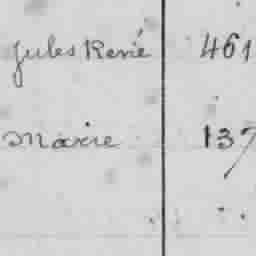 Jules René 461
Marie 137